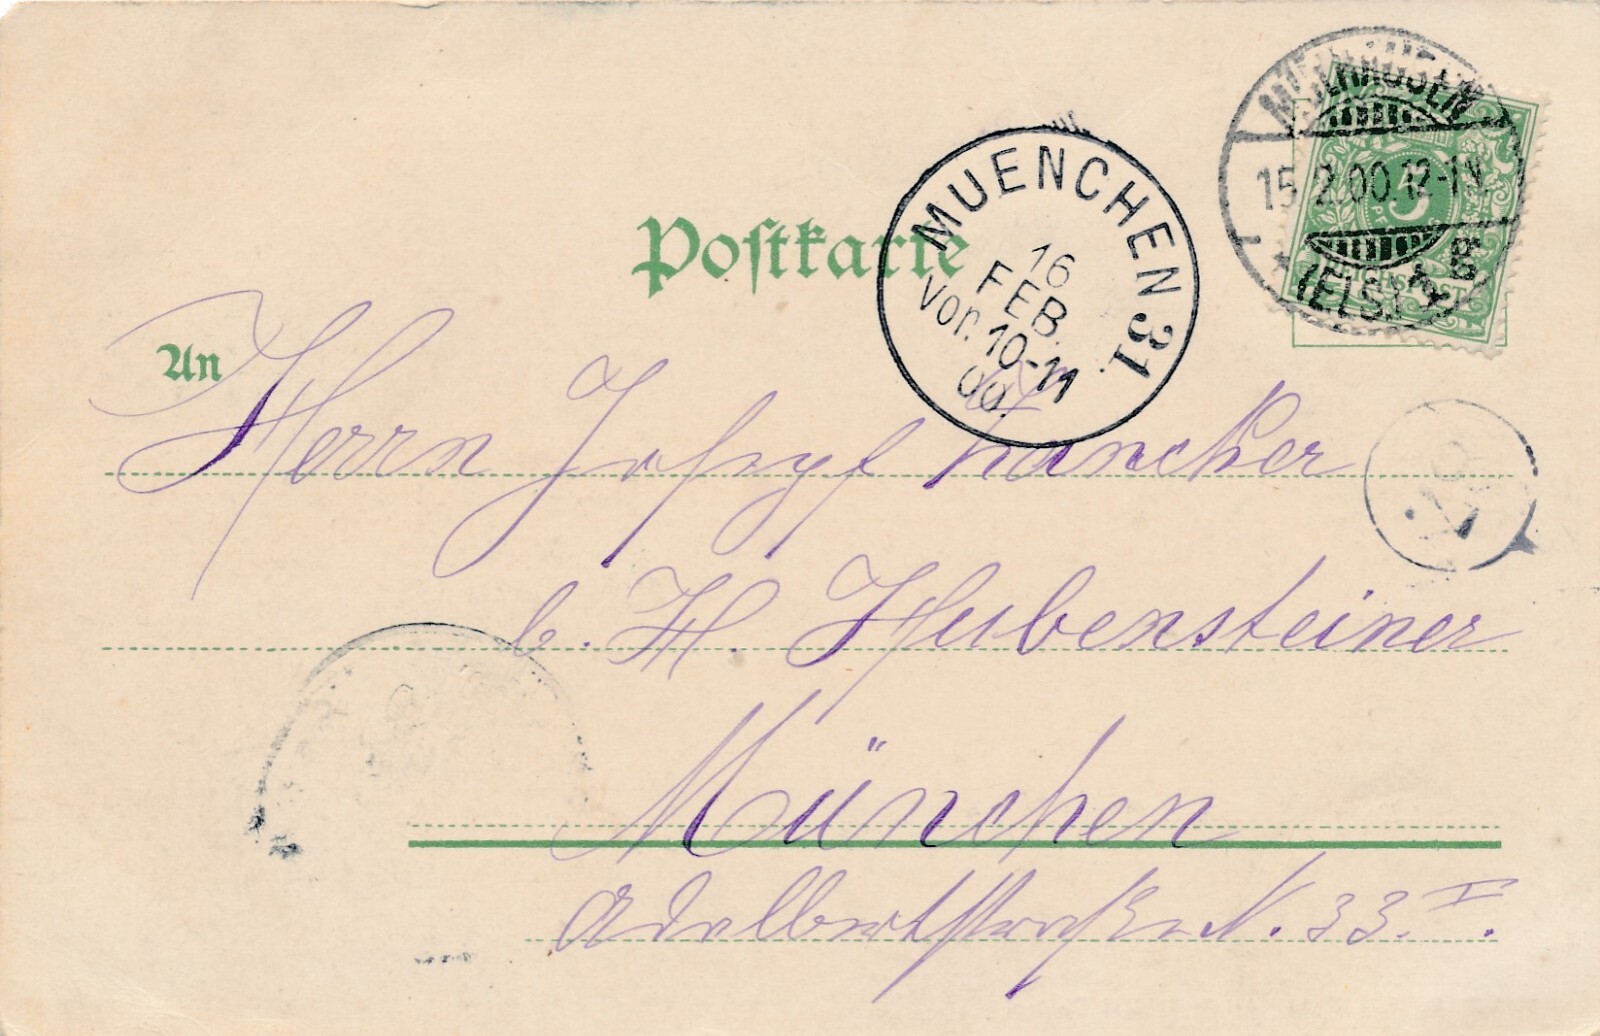 Postkarte
MUENCHEN 31
16
FEB.
Vor. 10-11
00.
MÜLHAUSEN
15.2.00.12-1N.
(ELS.)
* 2 B
An
Herrn Joseph
b. H. Hubensteiner
München
Adelbertstraße N. 33. I.